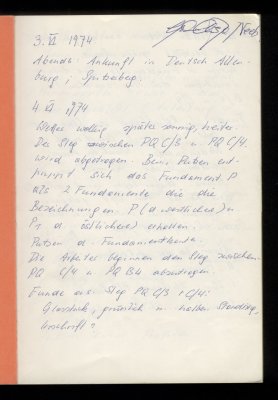 3. VI 1974
Abends Ankunft in Deutsch Alten-
burg, Spitzerberg.
4. VI 1974
Wetter wolkig später sonnig, heiter.
Der Steg zwischen PQ C/3 u PQ C/4
wird abgetragen. Beim Putzen ent-
puppt sich das Fundament P
als 2 Fundamente die die
Bezeichnungen P (d westlichere) u
P1 d östlichere) erhalten.
Putzen d. Fundamentkante.
Die Arbeiter beginnen den Steg zwischen
PQ C/4 u PQ B4 abzutragen.
Funde aus Steg PQ C/3 + C/4:
Glasstück, grünlich m. halben Standring,
Inschrift?